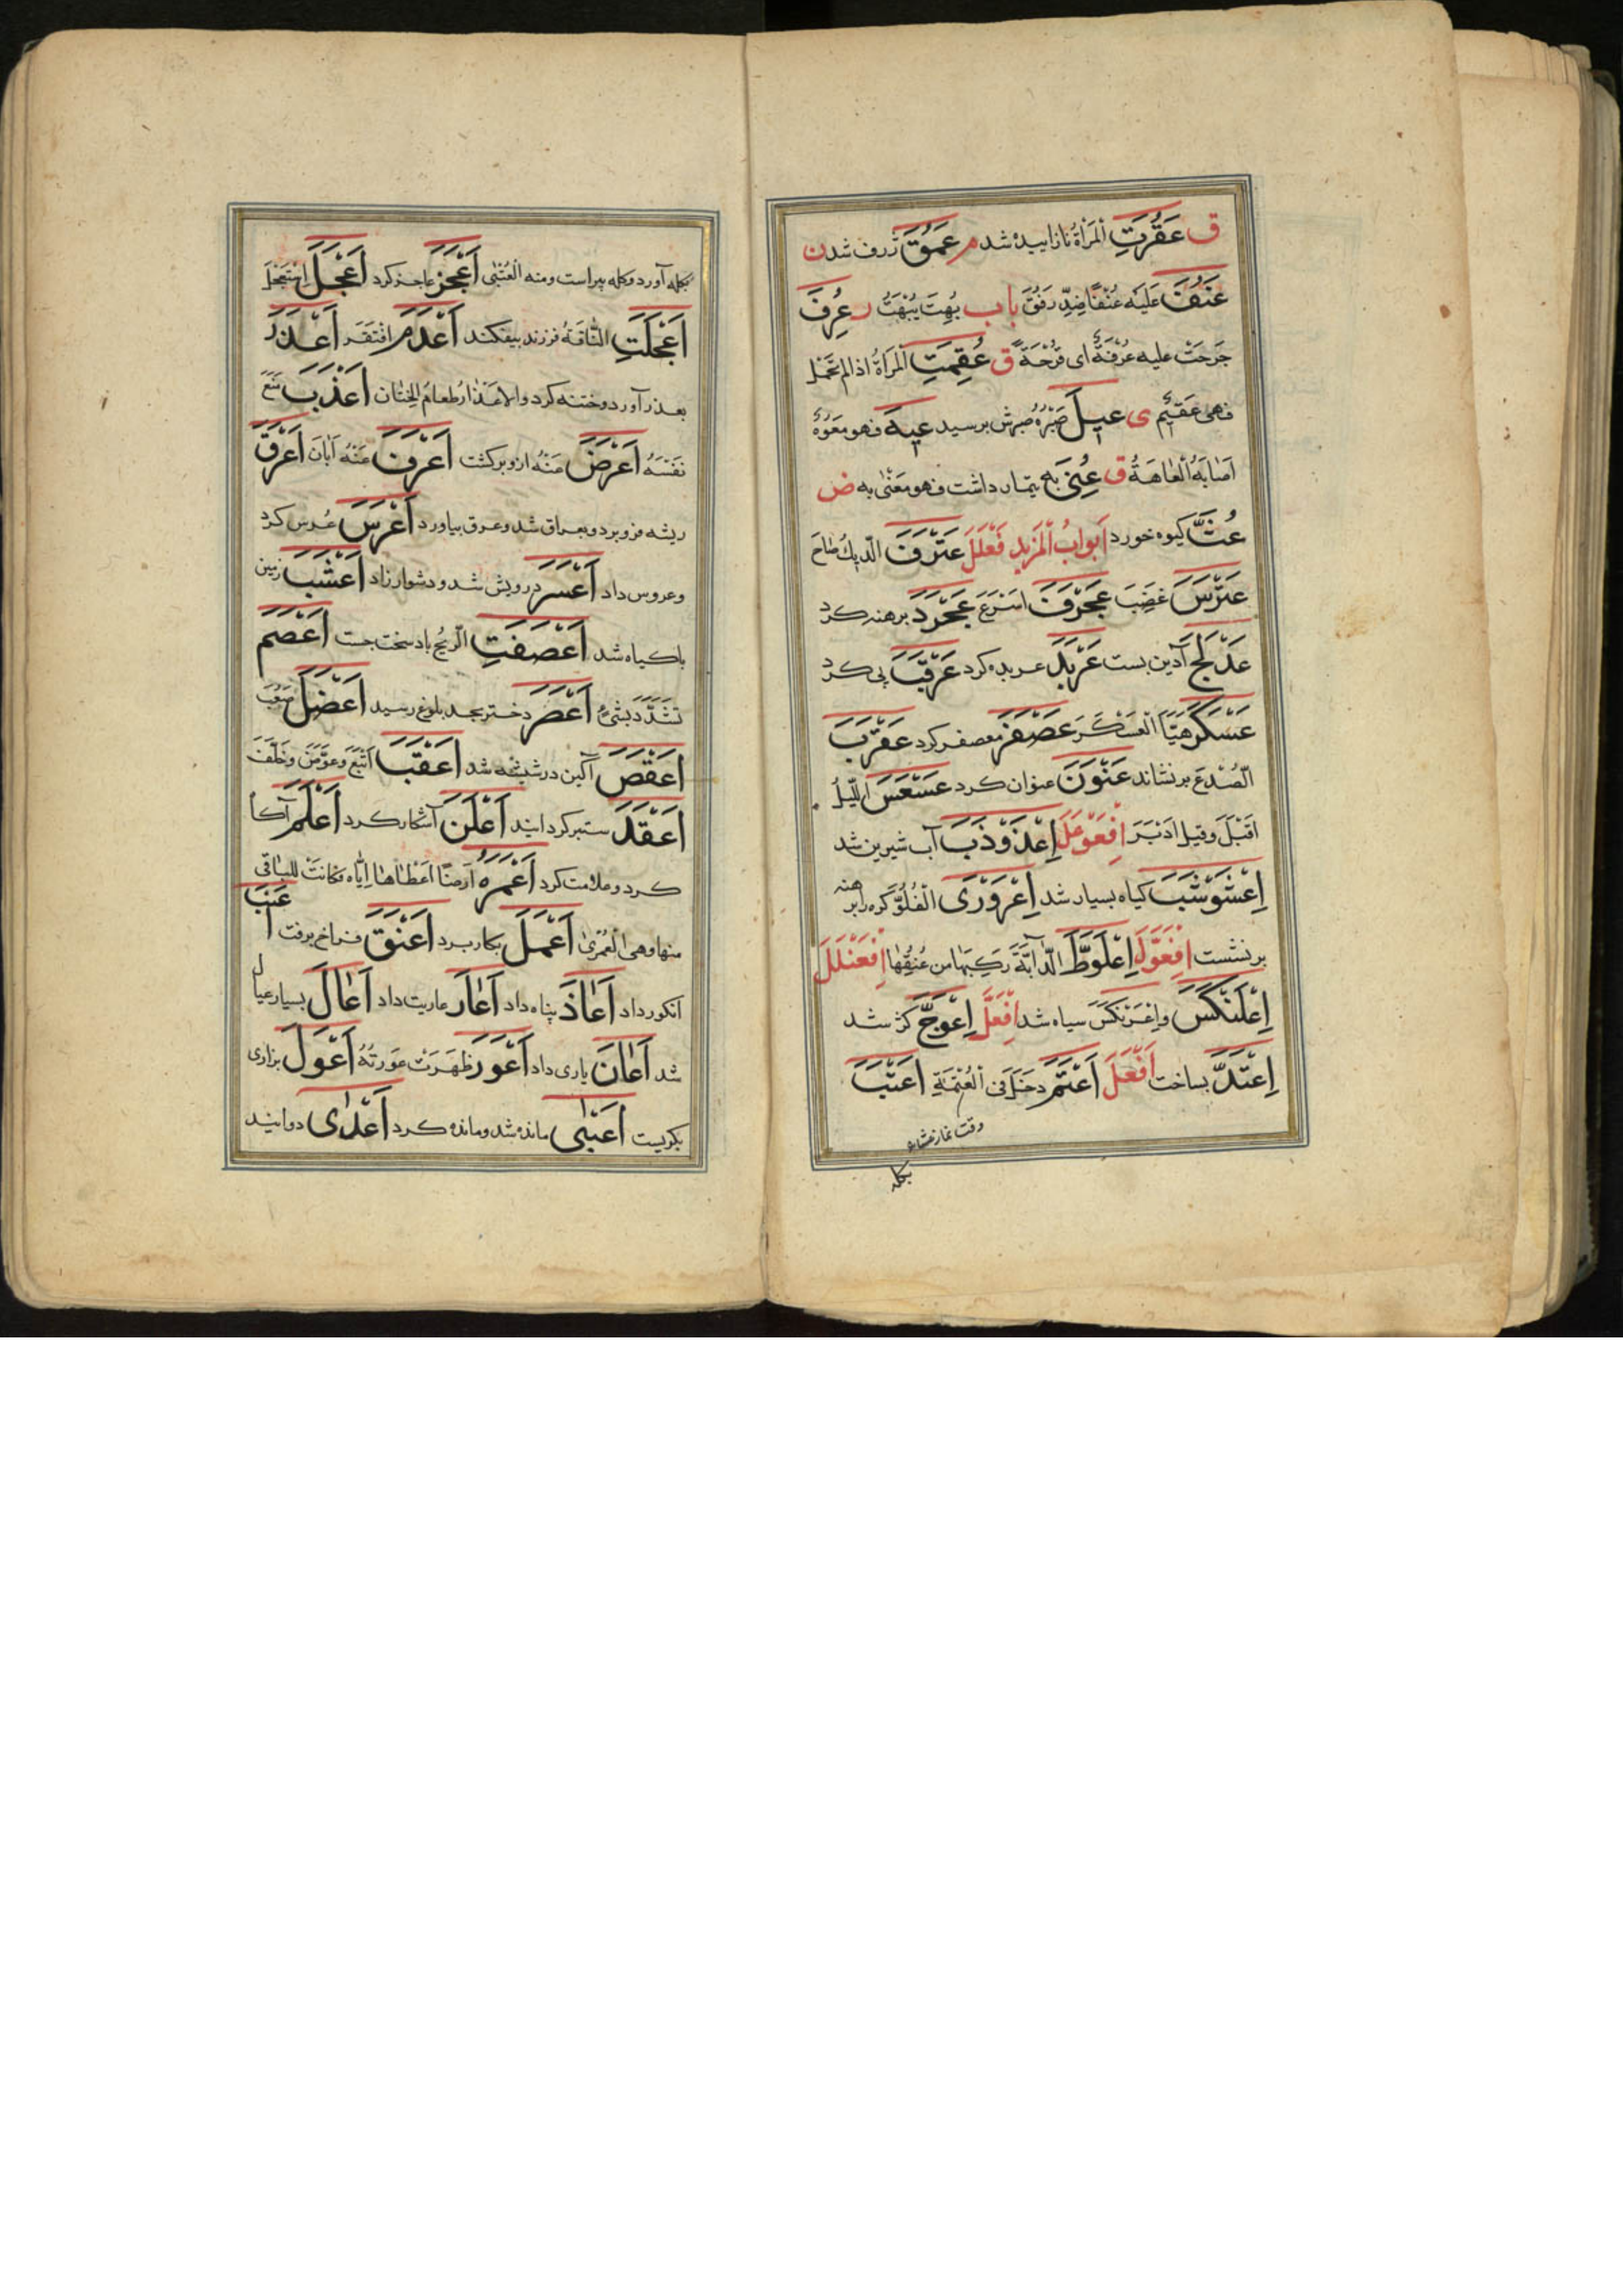 ق عَقُرَتِ الْمَرْأةُ نازاییده شد م عَمُقَ ژرف شدن
عَنُفَ عَلَيْهِ عُنْفًا ضِدّ رَفُقَ باب بُهِتَ يُبْهَتُ ر عُرِفَ
جَرَحَتْ عليه عُرْفَةٌ اى قَرْحَةٌ ق عُقِمَتِ الْمَرْأةُ اذا لم تَحْمِل
فهى عَقيمٌ ى عيلَ صَبْرُهُ صبرش برسید عيهَ فهو مَعُوْهٌ
اَصٰابَهُ الْعٰاهَةُ ق عُنِىَ بِه تیمار داشت فهو مَعْنىٌّ به ض
عُثَّ کیوه خورد اَبوابُ الْمَزيدِ فَعْلَلَ عَتْرَفَ الدّيكُ صٰاحَ
عَتْرَسَ غَضِبَ عَجْرَفَ اَسْرَعَ عَجْرَدَ برهنه کرد
عَذْلَجَ آذین بست عَرْبَدَ عربده کرد عَرْقَبَ پی کرد
عَسْكَرَ هَيَّاَ الْعَسْكَرَ عَصْفَرَ معصفر کرد عَقْرَبَ
الصُّدْغَ برنشاند عَنْوَنَ عنوان کرد عَسْعَسَ اللَّيلُ
اَقْبَلَ وقيل اَدْبَرَ اِفْعَوْعَلَ اِعْذَوْذَبَ آب شیرین شد
اِعْشَوْشَبَ کیاه بسیار شد اِعْرَوْرىٰ الْفُلُوَّ کره را برهنه
برنشست اِفْعَوَّلَ اِعْلَوَّطَ الدّٰابَّةَ رَكِبَهٰا من عُنُقِهٰا اِفْعَنْلَلَ
اِعْلَنْكَسَ واِعْرَنْكَسَ سیاه شد اِفْعَلَّ اِعْوَجَّ کژ شد
اِعْتَدَّ بساخت اَفْعَلَ اَعْتَمَ دَخَلَ فى الْعَتَمَةِ اَعْتَبَ
وقت نماز عشاء
بکله
بکله آورد وکله پیراست ومنه الْعُتْبىٰ اَعْجَزَ عاجز کرد اَعْجَلَ اِسْتَعْجَلَ
اَعْجَلَتِ النّٰاقَةُ فرزند بیفکند اَعْدَمَ افْتَقَرَ اَعْذَرَ
بعذر آورد وختنه کرد والاعْذٰارُ طعامُ الخِتٰان اَعْذَبَ مَنَعَ
نَفْسَهُ اَعْرَضَ عَنْهُ ازو برکشت اَعْرَفَ عَنْهُ اَبٰانَ اَعْرَقَ
ریشه فرو برد وبعراق شد وعرق بیاورد اَعْرَسَ عُرس کرد
وعروس داد اَعْسَرَ درویش شد ودشوار زاد اَعْشَبَ زمین
باکیاه شد اَعْصَفَتِ الرّيحُ باد سخت جست اَعْصَمَ
تَشَدَّدَ بشَىْءٍ اَعْصَرَ دختر بحد بلوغ رسید اَعْضَلَ صَعُبَ
اَعْفَصَ آکین در شیشه شد اَعْقَبَ اَتْبَعَ وعَوَّضَ وخَلَّفَ
اَعْقَدَ ستبر کردانید اَعْلَنَ آشکار کرد اَعْلَمَ آکاه
کرد وعلامت کرد اَعْمَرَهُ اَرْضًا اَعْطٰاهٰا اِيّٰاه فكٰانَتْ للبٰاقى
منهٰا وهى الْعُمْرىٰ اَعْمَلَ بکار برد اَعْنَقَ فراخ برفت اَعْنَبَ
انکور داد اَعٰاذَ پناه داد اَعٰارَ عاریت داد اَعٰالَ بسیار عیال
شد اَعٰانَ یاری داد اَعْوَرَ ظَهَرَتْ عَورَتُهُ اَعْوَلَ بزاری
بکریست اَعْيٰى مانده شد ومانده کرد اَعْدىٰ دوانید